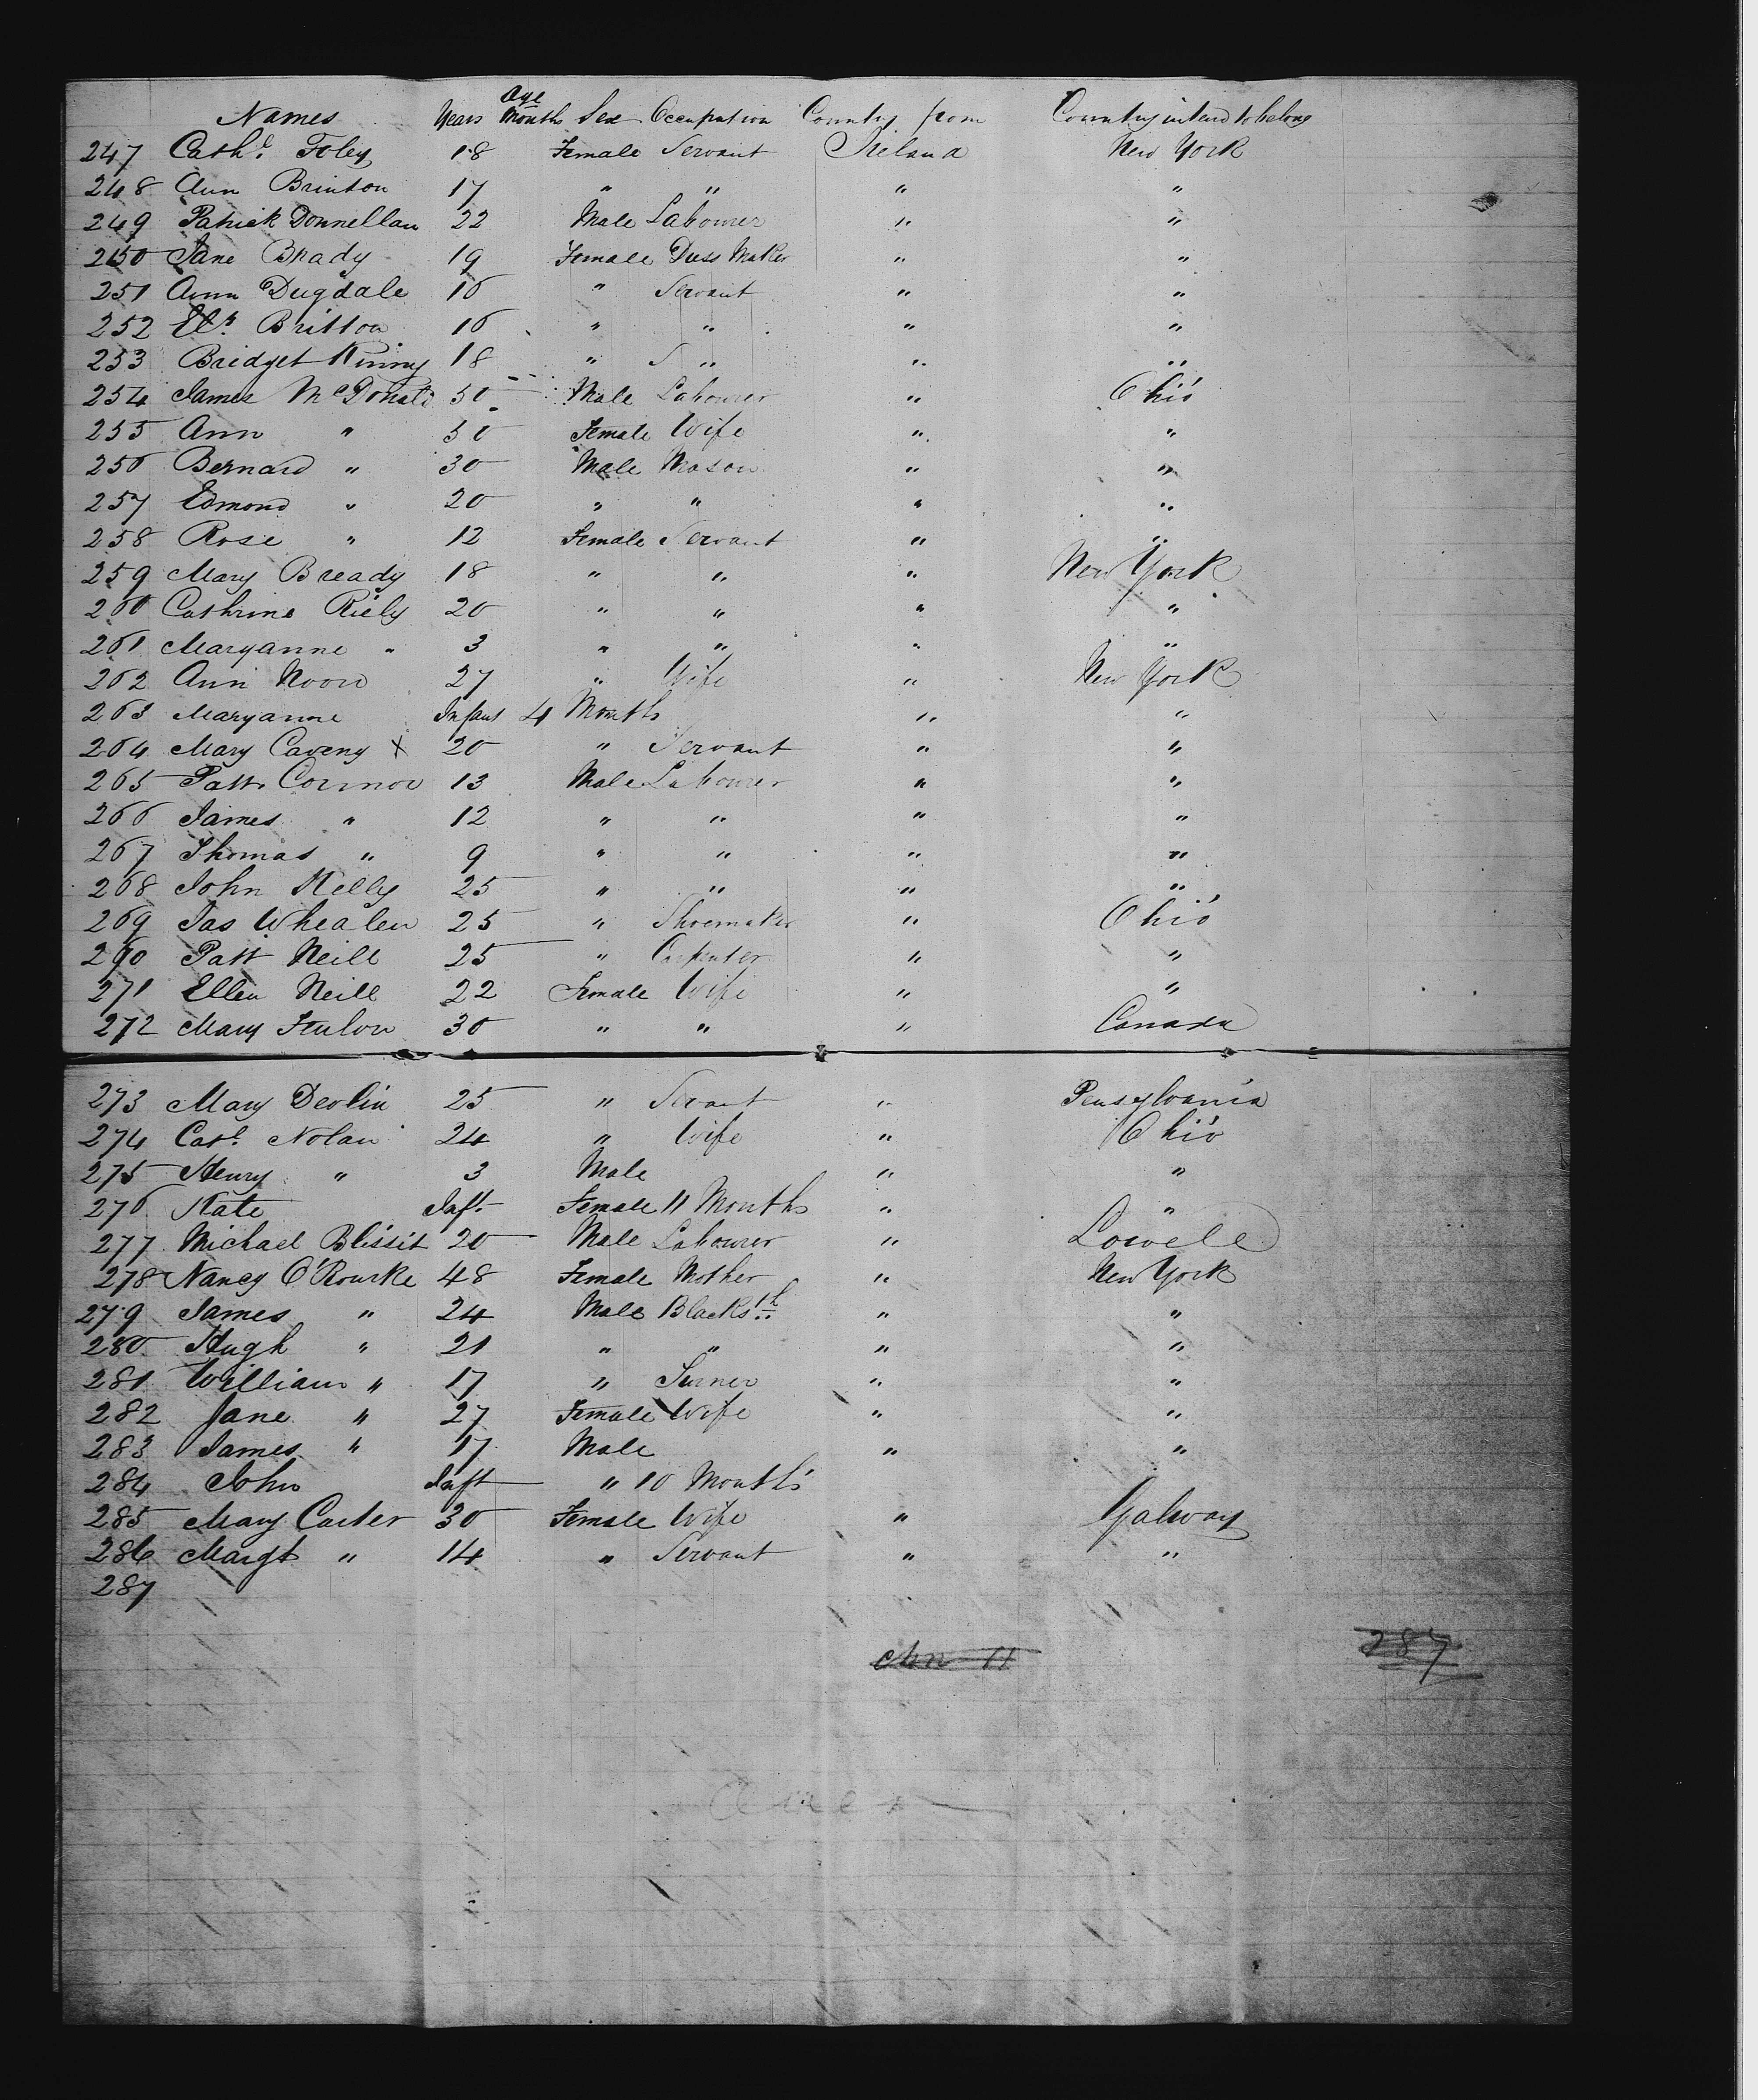 Names Years Age Months Sex Occupation Country from Country intend to belong
247 Cathe Foley 18 Female Servant Ireland New York
248 Ann Brinton 17 " " " "
249 Patrick Donnellan 22 Male Labourer " "
250 Jane Brady 19 Female Dress Maker " "
251 Ann Dugdale 16 " Servant " "
252 Britton 16 " " " "
253 Bridget Kinny 18 " " " "
254 James McDonald 50 Male Labourer " Ohio
255 Ann " 50 Female Wife " "
256 Bernard " 30 Male Mason " "
257 Edmond " 20 " " " "
258 Rose " 12 Female Servant " "
259 Mary Bready 18 " " " New York
260 Cathrine Riely 20 " " " "
261 Maryanne " 3 " " " "
262 Ann 27 " Wife " New York
263 Maryanne Infant 4 Months " "
264 Mary Caveny X 20 " Servant " "
265 Patt Connor 13 Male Labourer " "
266 James " 12 " " " "
267 Thomas " 9 " " " "
268 John Kelly 25 " " " "
269 Jas Whealen 25 " Shoemaker " Ohio
270 Patt Neill 25 " Carpenter " "
271 Ellen Neill 22 Female Wife " "
272 Mary 30 " " " Canada
273 Mary Devlin 25 " Servant " Pensylvania
274 Cath Nolan 24 " Wife " Ohio
275 Henry " 3 Male " "
276 Kate Inft Female 11 Months " "
277 Michael Blissit 20 Male Labourer " Lowell
278 Nancy O'Rourke 48 Female Mother " New York
279 James " 24 Male Blacksth " "
280 Hugh " 21 " " " "
281 William " 17 " Turner " "
282 Jane " 27 Female Wife " "
283 James " 17 Male " "
284 John Inft " 10 Months
285 Mary Carter 30 Female Wife " Galway
286 Margt " 14 " Servant " "
287
287